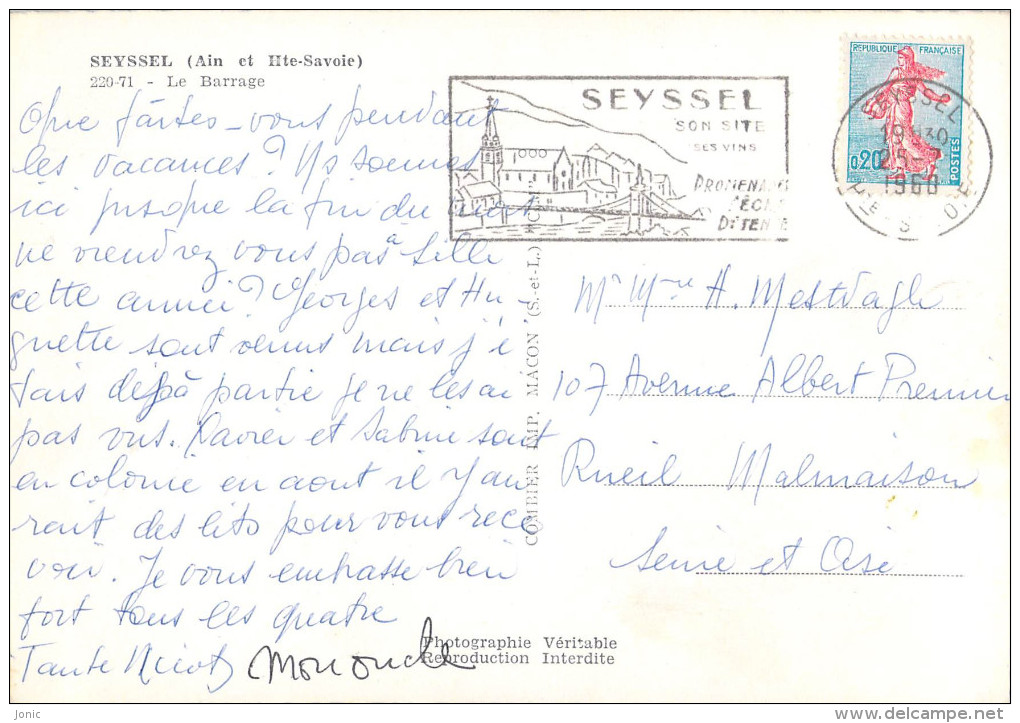 SEYSSEL (Ain et Hte-Savoie)
220-71 - Le Barrage
Que faites-vous pendant
les vacances? Ns sommes
ici jusque la fin du mois
ne viendrez vous pas à Lille
cette année? Georges et Hu-
guette sont venus mais j'é
tais déjà partie je ne les ai
pas vus. Xavier et Sabine sont
en colonie en aout il y au
rait des lits pour vous rece
voir. Je vous embrasse bien
fort tous les quatre
Tante
Mononcle
SEYSSEL
SON SITE
SES VINS
PROMENADES
PÊCHE
DÉTENTE
REPUBLIQUE FRANÇAISE
0,20
POSTES
SEYSSEL
19H30
25-
1960
HTE-SAVOIE
COMBIER IMP. MACON (S.-et-L.)
Mr Mme H. Mestdagh
107 Avenue Albert Premier
Rueil Malmaison
Seine et Oise
Photographie Véritable
Reproduction Interdite
Jonic
delcampe.net